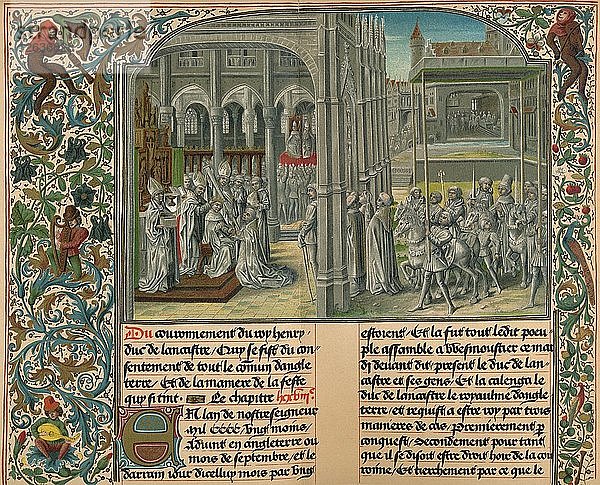 Du couronnement du roy henry
duc de lancastre / Quy se fist du con
sentement de tout le comun dangle
terre / Et de la maniere de la feste
quy si tint. Le chapitre
En lan de nostre seigneur
mil CCCC / ung moins /
Advint en angleterre ou
mois de septembre / et le
darrain jour dicelluy mois par ung
estoient / Et la fut tout ledit peu
ple assamble a Wesmoustier ce mar
dj devant dit / present le duc de lan
castre et ses gens / Et la calenga le
duc de lancastre le royaulme dangle
terre / et requist a estre roy par trois
manieres de cas / Premierement p
conquest / Secondement pour tant
que il se disoit estre droit hoir de la cou
ronne / Et tierchement par ce que le